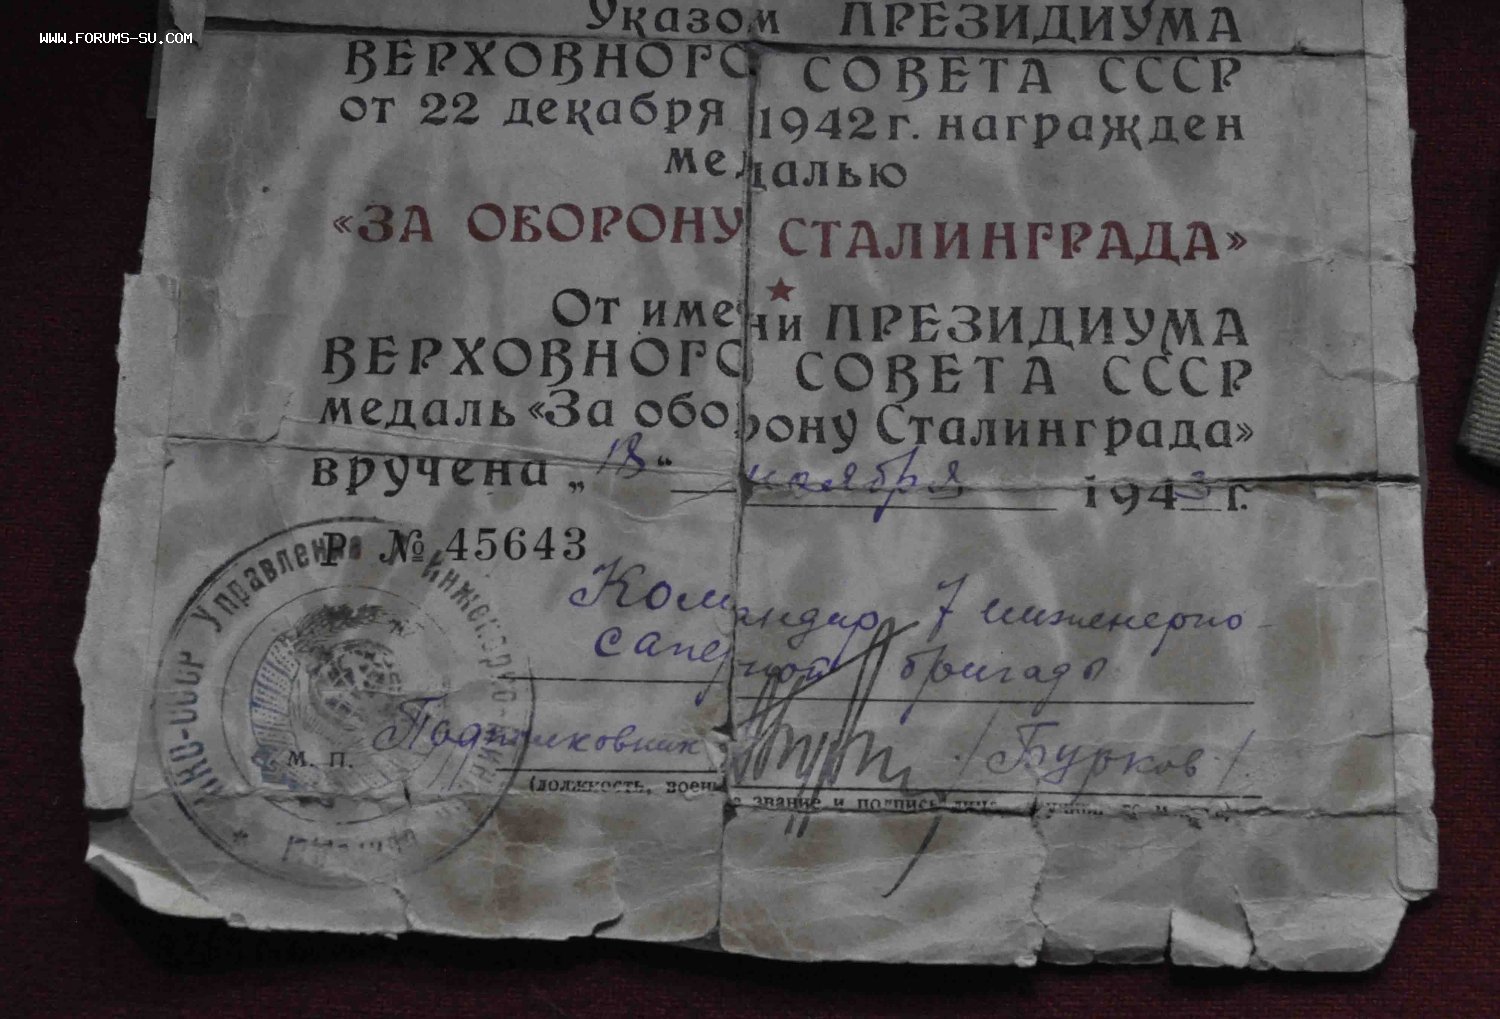 WWW.FORUMS-SU.COM
Указом ПРЕЗИДИУМА
ВЕРХОВНОГО СОВЕТА СССР
от 22 декабря 1942 г. награжден
медалью
«ЗА ОБОРОНУ СТАЛИНГРАДА»
От имени ПРЕЗИДИУМА
ВЕРХОВНОГО СОВЕТА СССР
медаль «За оборону Сталинграда»
вручена „18“ ноября 1943 г.
Р № 45643
Командир 7 инженерно-
саперной бригады
Подполковник /Бурков/
М. П.
(должность, военное звание и подпись лица
НКО-СССР Управление Инженерно